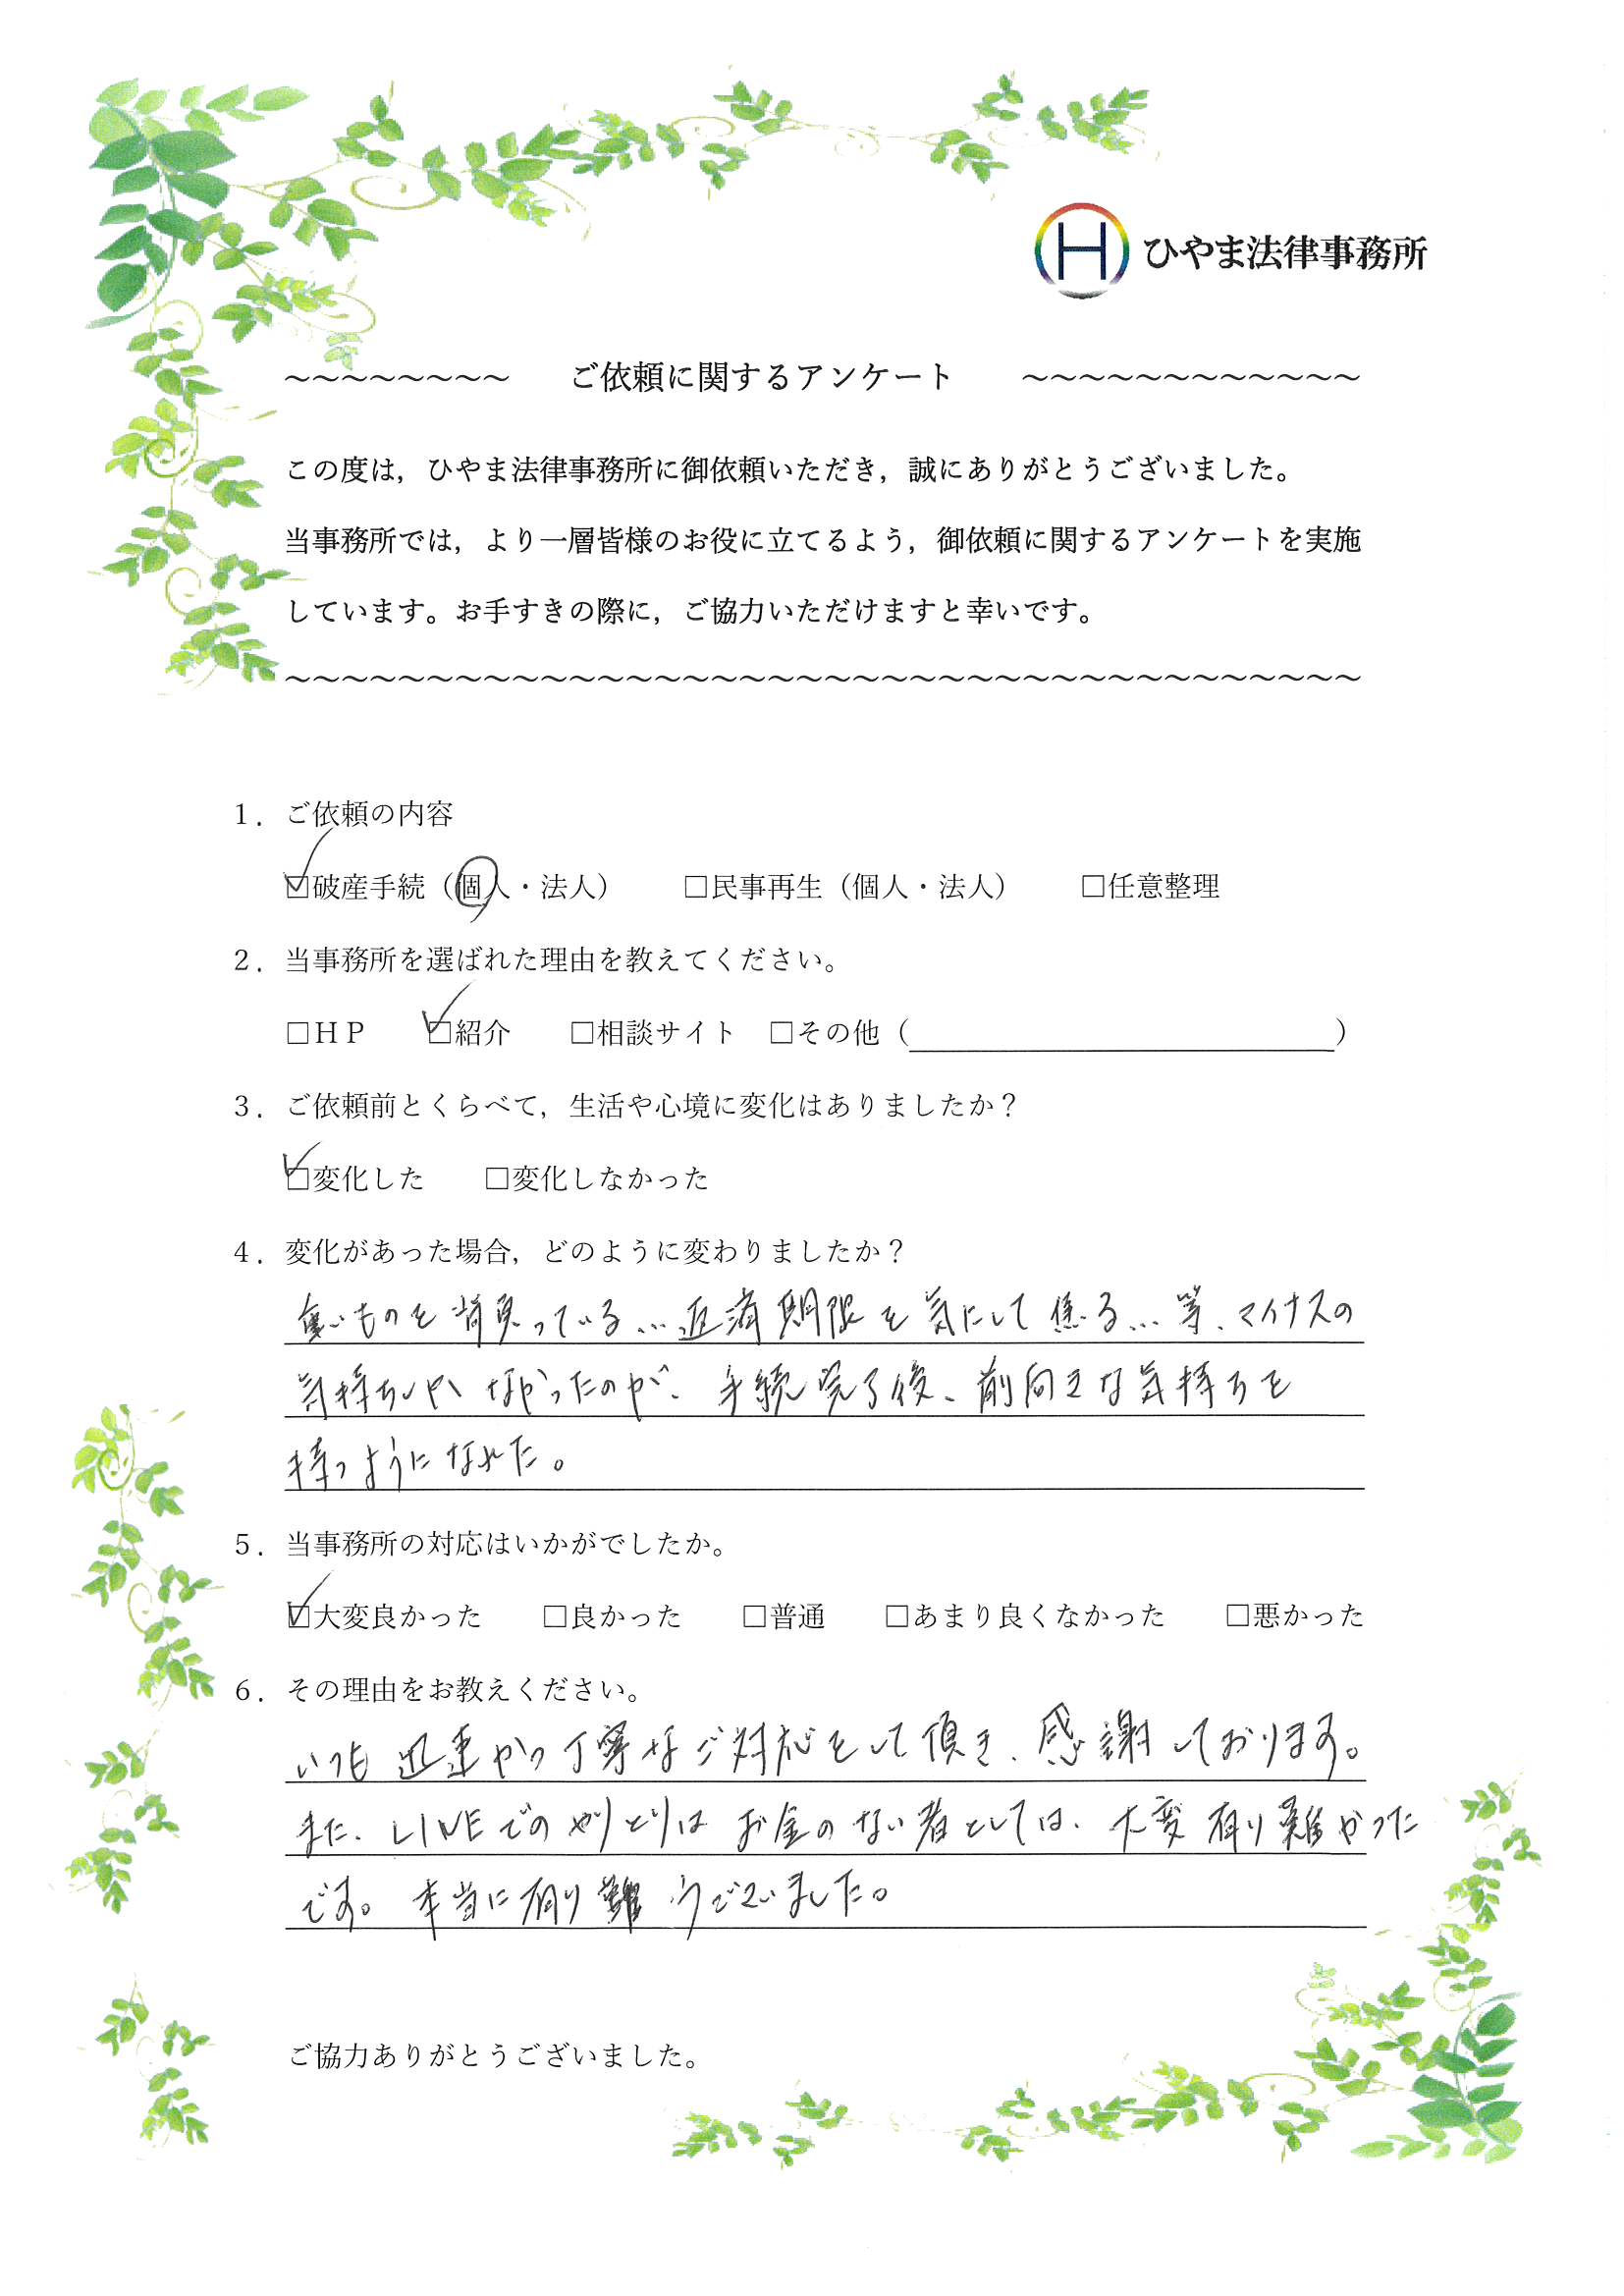 H ひやま法律事務所
~~~~~~~~ ご依頼に関するアンケート ~~~~~~~~~~~~
この度は，ひやま法律事務所に御依頼いただき，誠にありがとうございました。
当事務所では，より一層皆様のお役に立てるよう，御依頼に関するアンケートを実施
しています。お手すきの際に，ご協力いただけますと幸いです。
~~~~~~~~~~~~~~~~~~~~~~~~~~~~~~~~~~~~~~
１．ご依頼の内容
☑破産手続（個人・法人） □民事再生（個人・法人） □任意整理
２．当事務所を選ばれた理由を教えてください。
□ＨＰ ☑紹介 □相談サイト □その他（　　　　　）
３．ご依頼前とくらべて，生活や心境に変化はありましたか？
☑変化した □変化しなかった
４．変化があった場合，どのように変わりましたか？
重いものを背負っている…返済期限を気にして焦る…等、マイナスの
気持ちしかなかったのが、手続完了後、前向きな気持ちを
持つようになれた。
５．当事務所の対応はいかがでしたか。
☑大変良かった □良かった □普通 □あまり良くなかった □悪かった
６．その理由をお教えください。
いつも迅速かつ丁寧なご対応をして頂き、感謝しております。
また、LINEでのやりとりはお金のない者としては、大変有り難かった
です。本当に有り難うございました。
ご協力ありがとうございました。